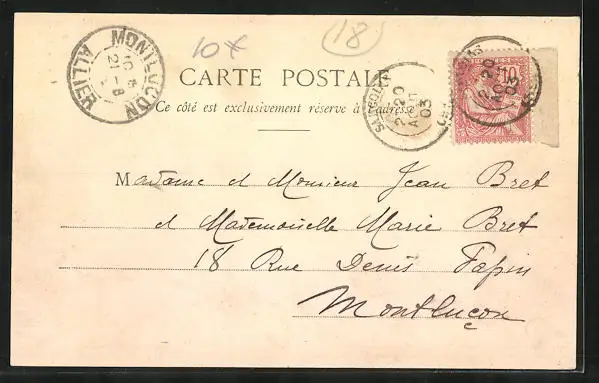 10x
18
MONTLUÇON
ALLIER
21 - 8
CARTE POSTALE
Ce côté est exclusivement réservé à l'adresse
20
AOUT
03
10
20
03
Madame et Monsieur Jean Bret
et Mademoiselle Marie Bret
18 Rue Denis Papin
Montluçon